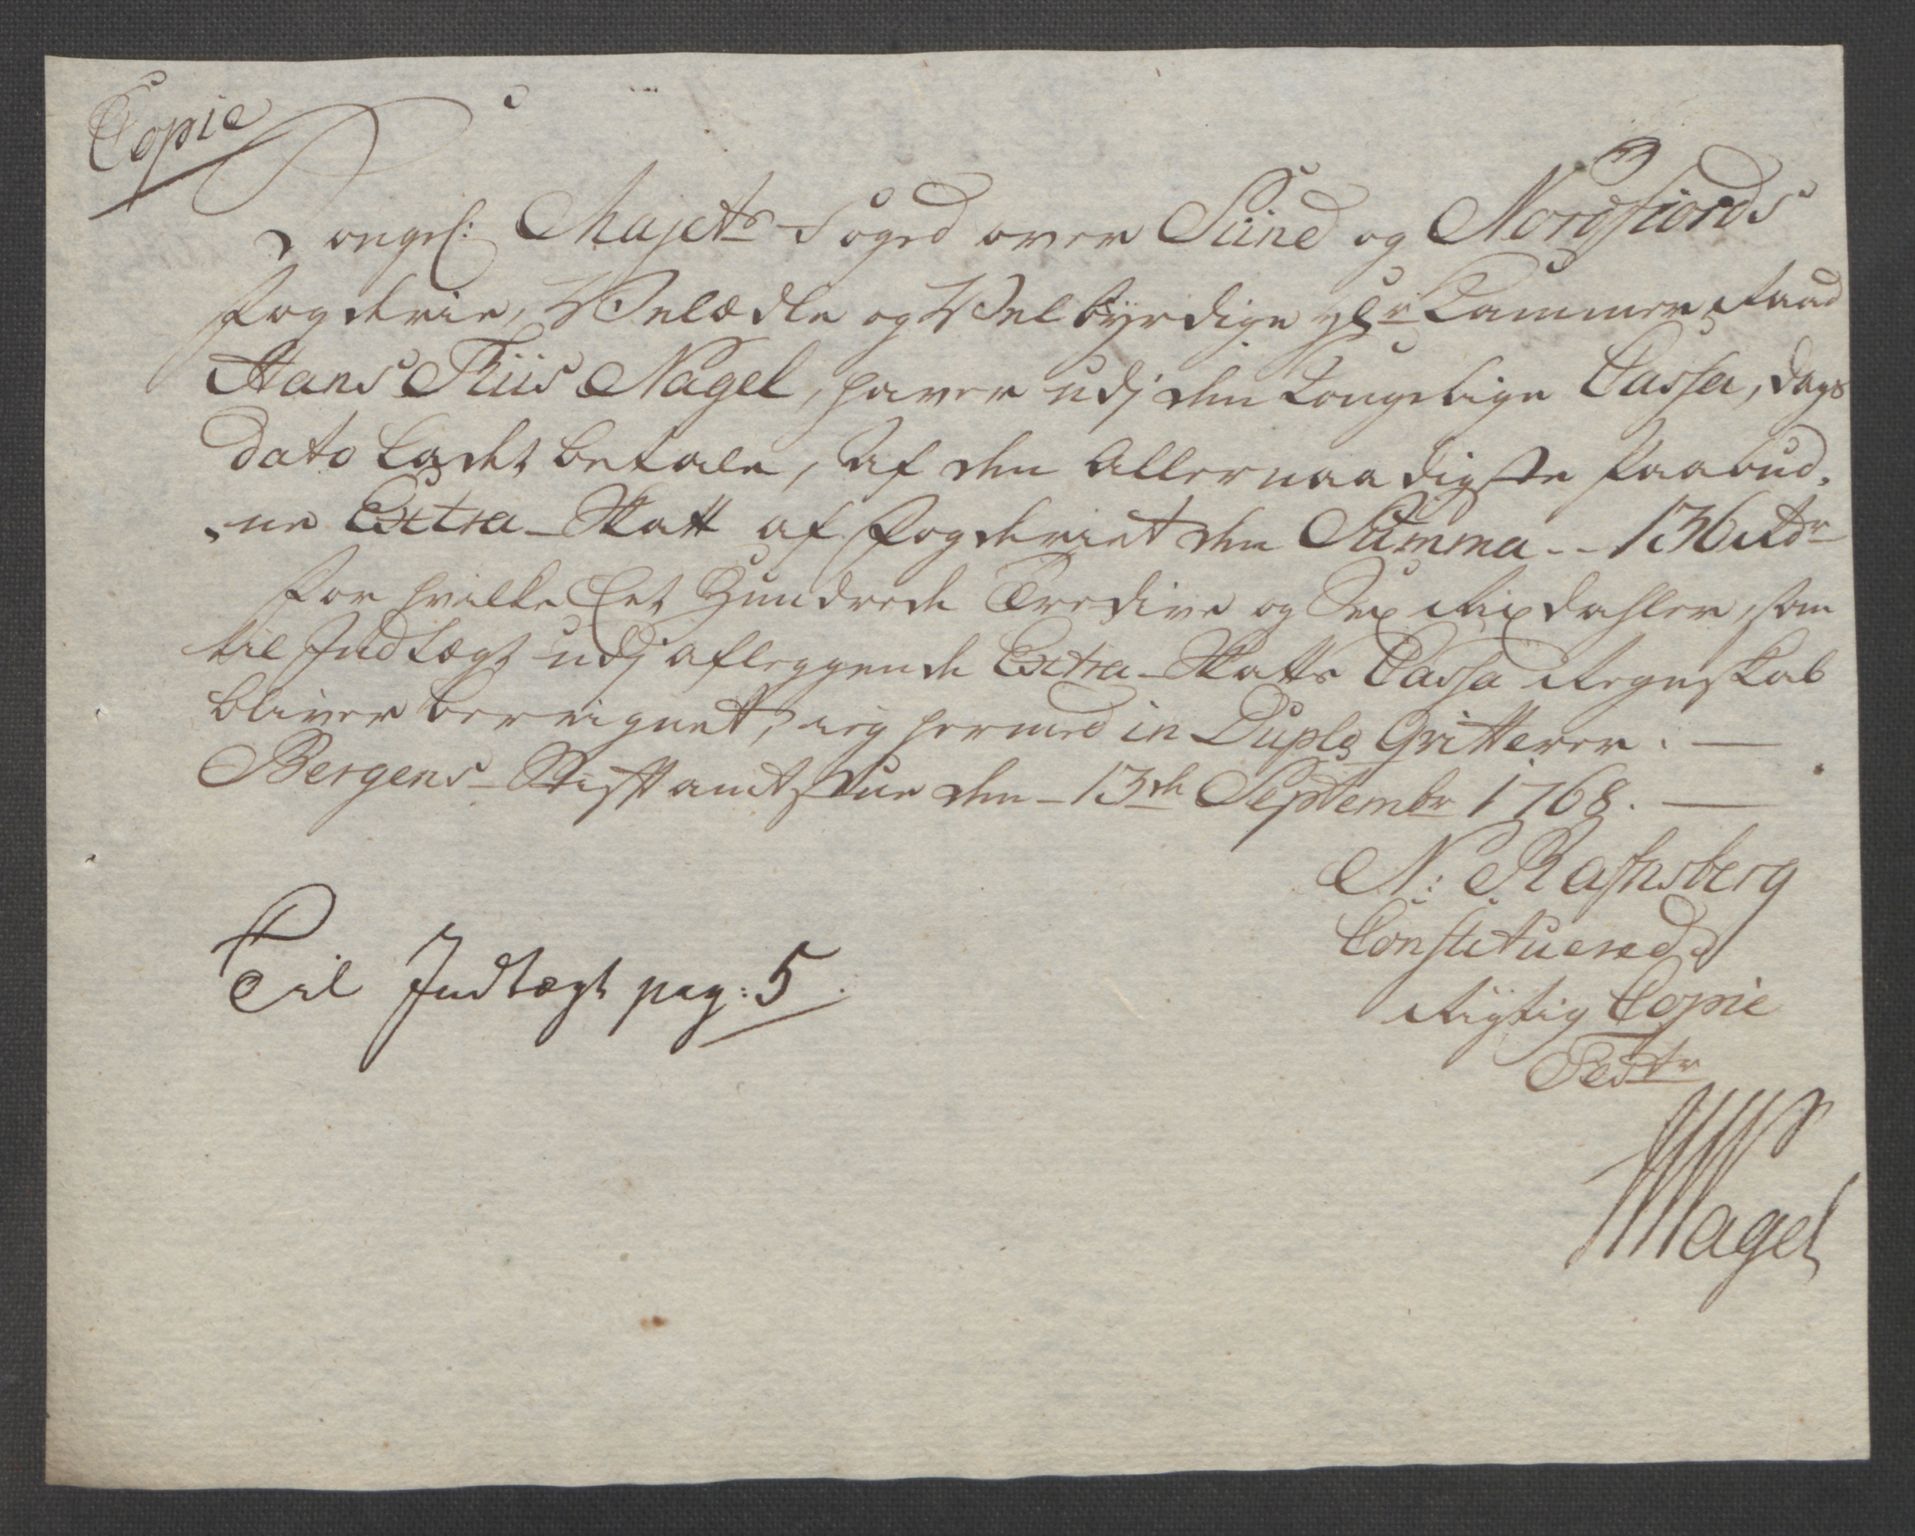 Copie
Kongel: Majets Foged over Sünd og Nordfiords
Fogderie, Velædle og Velbyrdige Hr Cammer Raad
Hans Tiis Nagel, haver udj den Kongelige Cassa, dags
dato ladet betale, af den Allernaadigste Paabud,
,ne Extra-Skatt af Fogderiet den Summa -- 136 Rdr
for hvilke Eet Hundrede Tredive og Sex Rixdahler, som
til Indtægt udj aflæggende Extra-Skatts Cassa Regnskab
bliver beregnet, ieg hermed in Duplo Qvitterer. —
Bergens Stiftamtstue den 13de Septembr 1768. —
N: Rafnsberg
Constituered
Rigtig Copie
Test:
Til Indtægt pag: 5.
Nagel